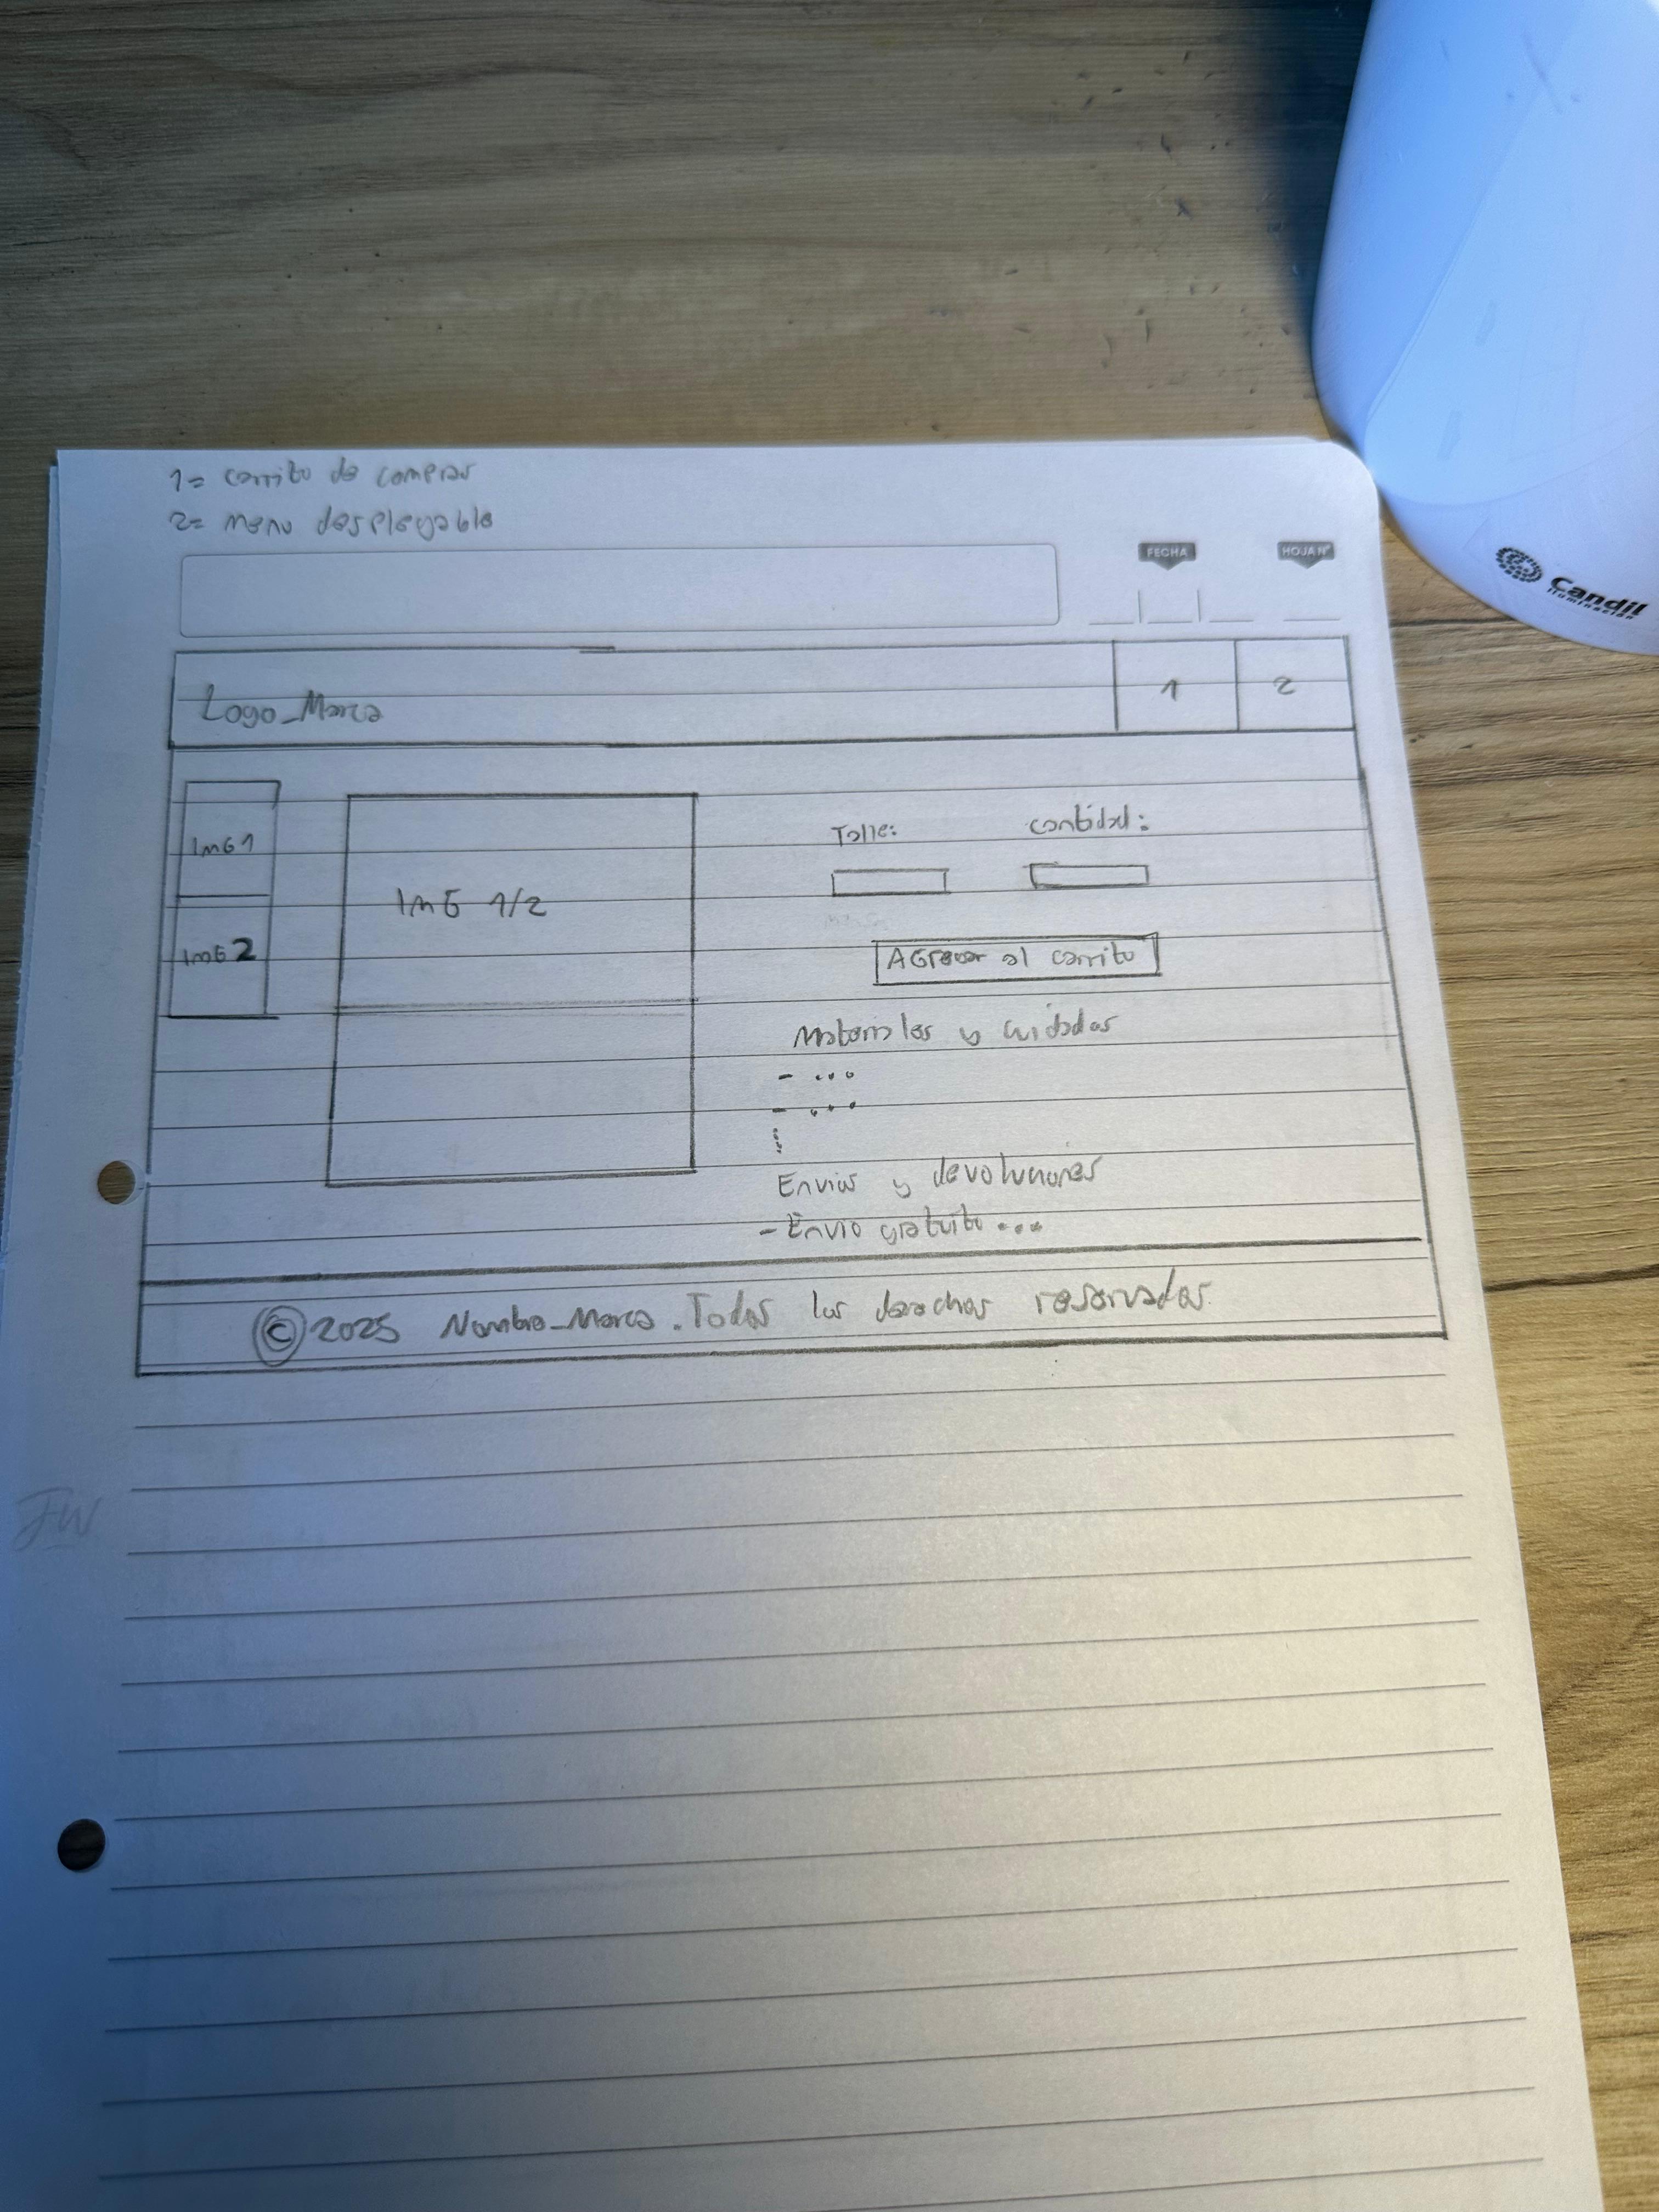 1= carrito de compras
2= menu desplegable
FECHA
HOJA Nº
Logo_Marca
1
2
IMG 1
IMG 2
IMG 1/2
Talle:
cantidad:
AGregar al carrito
Materiales y cuidados
- ...
- ...
Envios y devoluciones
- Envio gratuito ...
© 2025 Nombre_Marca. Todos los derechos reservados.
JW
Candil
iluminación